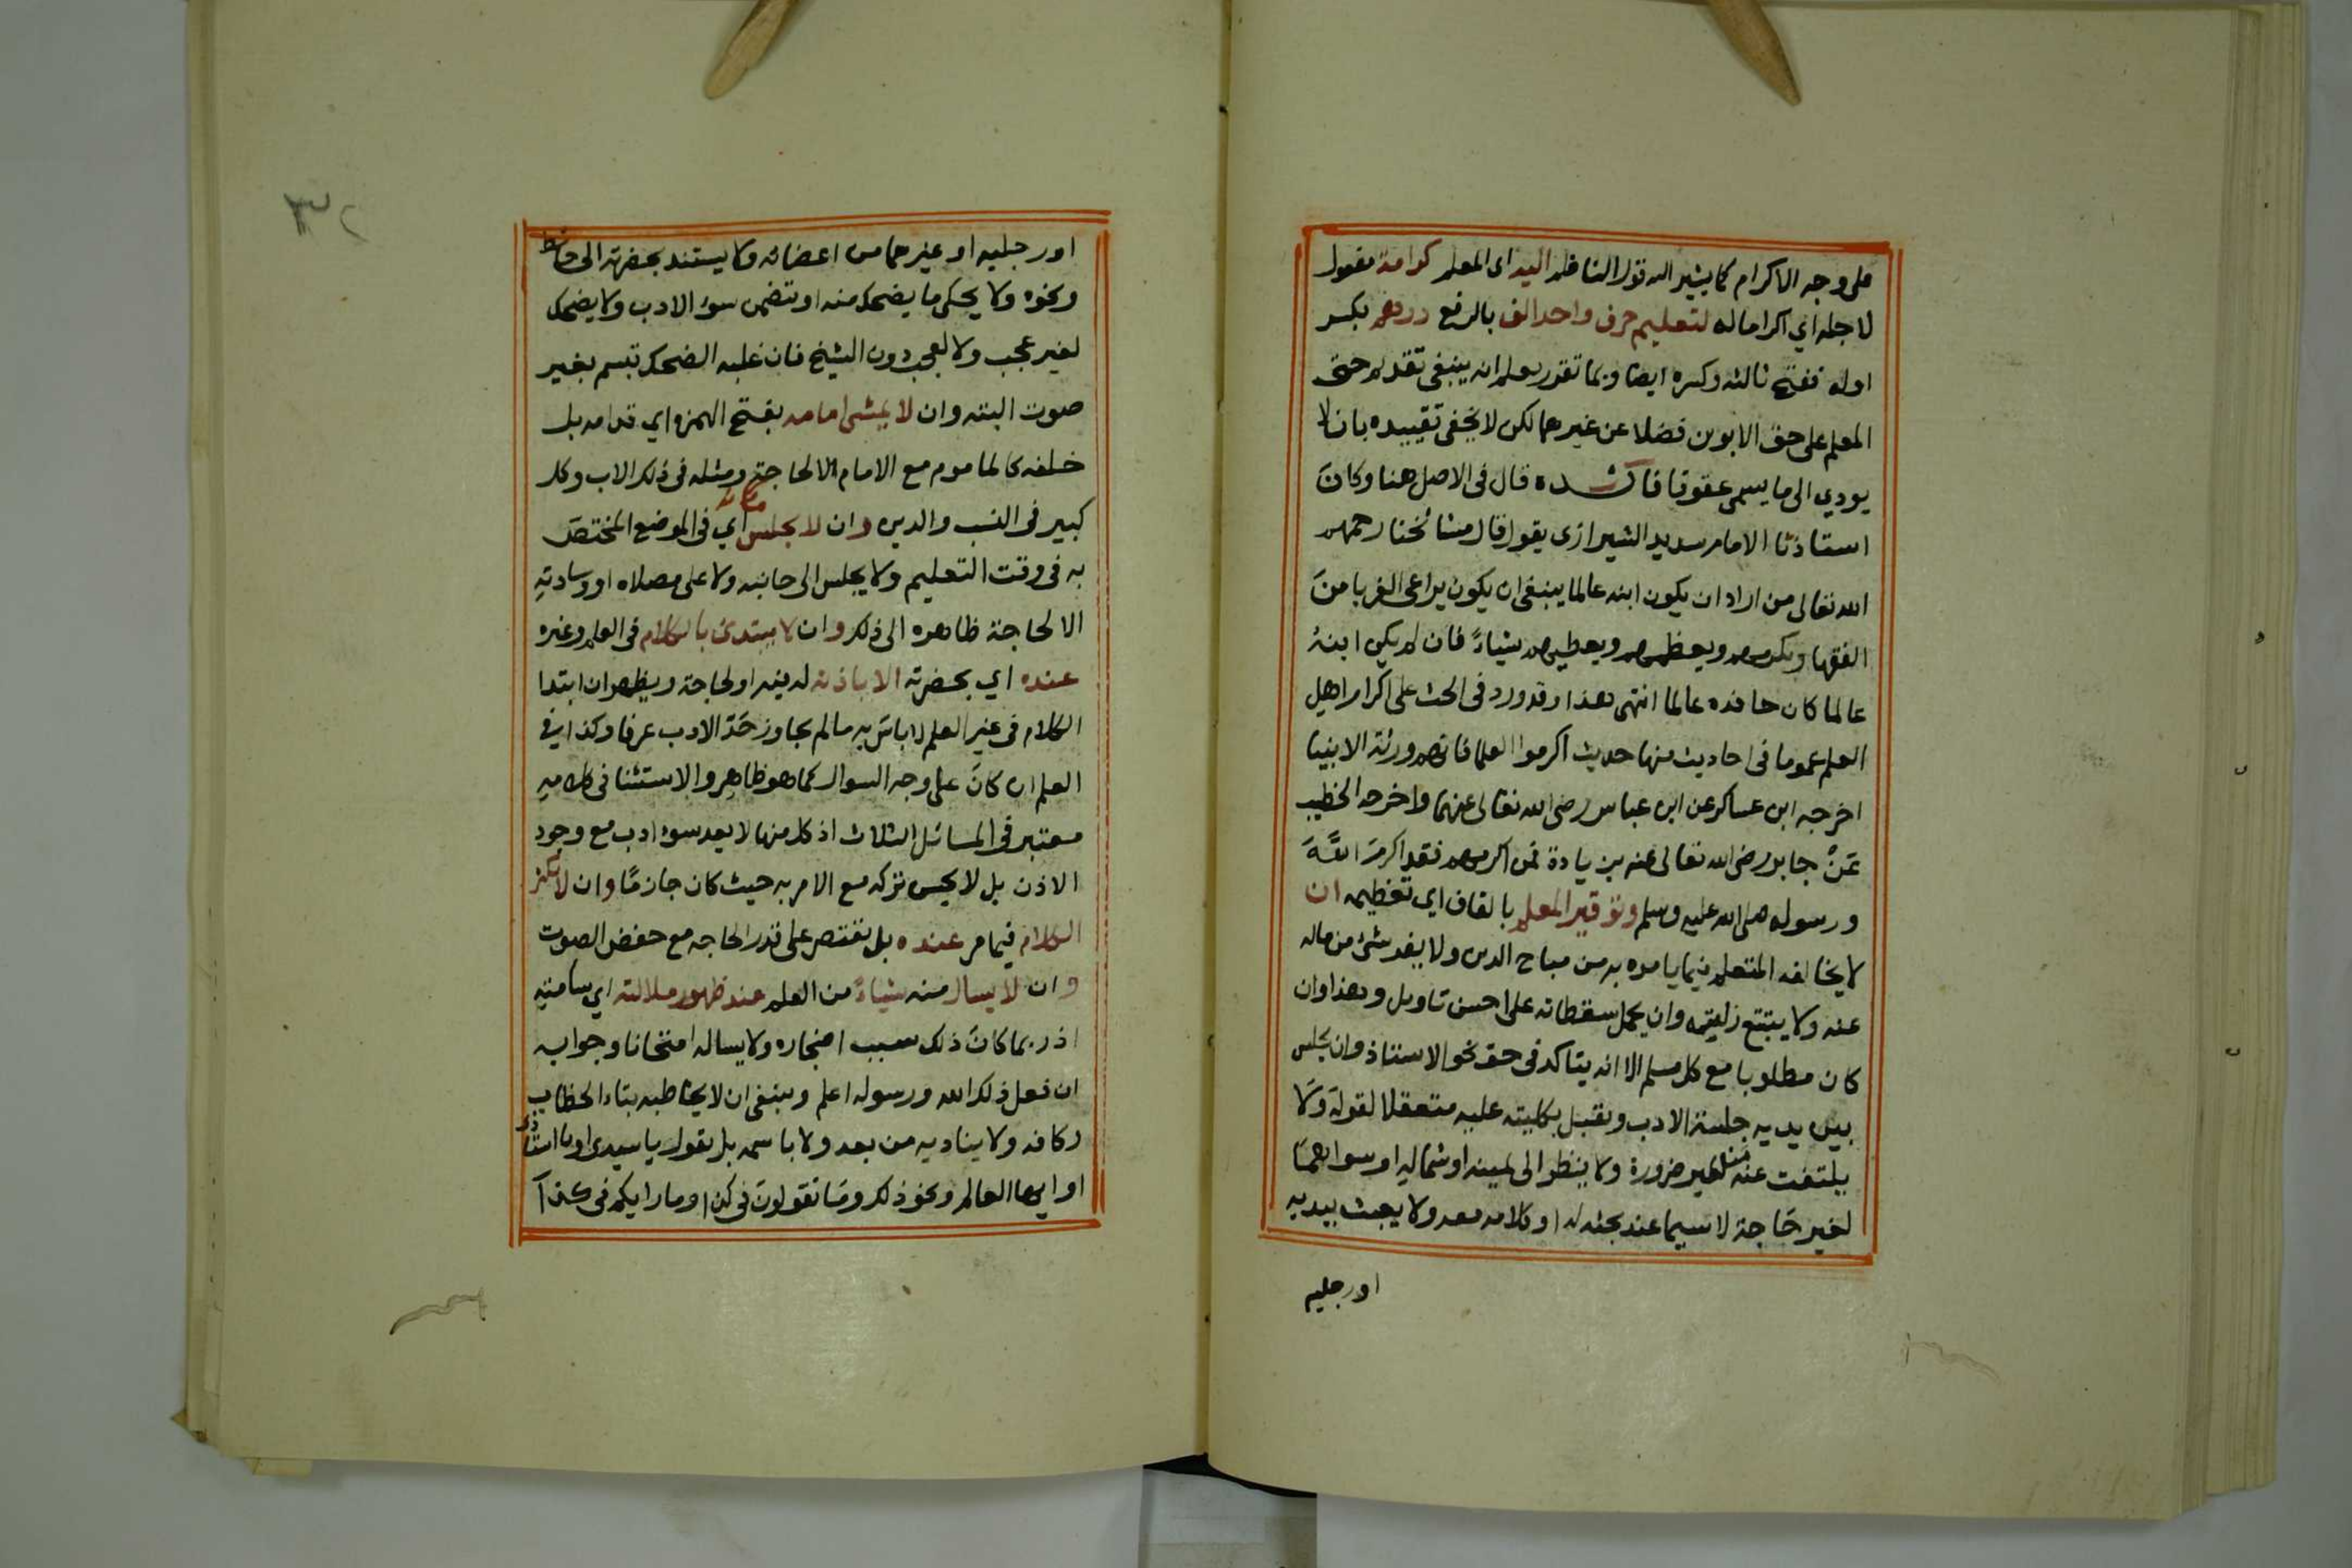 على وجه الاكرام كما يشير اليه قول الناظم اليه اى المعلم كرامة مفعول
لاجله اي اكراما له لتعليم حرف واحد الف بالرفع درهم بكسر
اوله ففتح ثالثه وكسره ايضا وبما تقدر يعلم انه ينبغى تقديم حق
المعلم على حق الابوين فضلا عن غيرهما لكن لا يخفى تقييده بان لا
يودي الى ما يسمى عقوقا فائدة قال فى الاصل هنا وكان
استاذنا الامام سديد الشيرازى يقول قال مشائخنا رحمهم
الله تعالى من اراد ان يكون ابنه عالما ينبغى ان يكون يراعى الغربا من
الفقها ويكرمهم ويعظمهم ويعطيهم شياء فان لم يكن ابنه
عالما كان حافده عالما انتهى هذا وقد ورد فى الحث على اكرام اهل
العلم عموما فى احاديث منها حديث اكرموا العلما فانهم ورثة الانبيا
اخرجه ابن عساكر عن ابن عباس رضى الله تعالى عنهما واخرجه الخطيب
عن جابر رضى الله تعالى عنه بزيادة فمن اكرمهم فقد اكرم الله
ورسوله صلى الله عليه وسلم وتوقير المعلم بالقاف اي تعظيمه ان
لا يخالفه المتعلم فيما يامره به من مباح الدين ولا ينفد شئ من ماله
عنه ولا يتتبع زلته وان يحمل سقطاته على احسن تاويل وهذا وان
كان مطلوبا مع كل مسلم الا انه يتاكد فى حق نحو الاستاذ وان يجلس
بين يديه جلسة الادب ويقبل بكليته عليه متعقلا لقوله ولا
يلتفت عنه لغير ضرورة ولا ينظر الى يمينه او شماله او سواهما
لغير حاجة لا سيما عند بحثه له او كلامه معه ولا يعبث بيديه
اورجليه
٣٢
اورجليه او غيرهما من اعضائه ولا يستند بحضرته الى حائط
ونحوه ولا يحكى ما يضحك منه او تتضمن سوء الادب ولا يضحك
لغير عجب ولا لعجب دون الشيخ فان غلبه الضحك تبسم بغير
صوت البتة وان لا يمشى امامه بفتح الهمزه اي قدامه بل
خلفه كالماموم مع الامام الا لحاجة ومثله فى ذلك الاب وكل
كبير فى النسب والدين وان لا يجلس مكانه اي فى الموضع المختص
به فى وقت التعليم ولا يجلس الى جانبه ولا على مصلاه او وسادته
الا لحاجة ظاهره الى ذلك وان لا يبتدئ بالكلام فى العلم وغيره
عنده اي بحضرته الا باذنه له فيه او لحاجة ويظهر ان ابتدا
الكلام فى غير العلم لا باس به ما لم يجاوز حد الادب عرفا وكذا فى
العلم ان كان على وجه السوال كما هو ظاهر والاستثنا فى كلامه
معتبر فى المسائل الثلاث اذ كل منها لا يعد سوء ادب مع وجود
الاذن بل لا يحسن تركه مع الامر به حيث كان جازما وان لا يكثر
الكلام فيما مر عنده بل يقتصر على قدر الحاجه مع خفض الصوت
وان لا يسال منه شياء من العلم عند ظهور ملالته اي سامته
اذ ربما كان ذلك سبب اضجاره ولا يساله امتحانا وجوابه
ان فعل ذلك الله ورسوله اعلم وينبغى ان لا يخاطبه بتاء الخطاب
وكافه ولا يناديه من بعد ولا باسمه بل يقول يا سيدى او يا استاذ
او ايها العالم ونحو ذلك وما تقولون فى كذا وما رايكم فى كذا